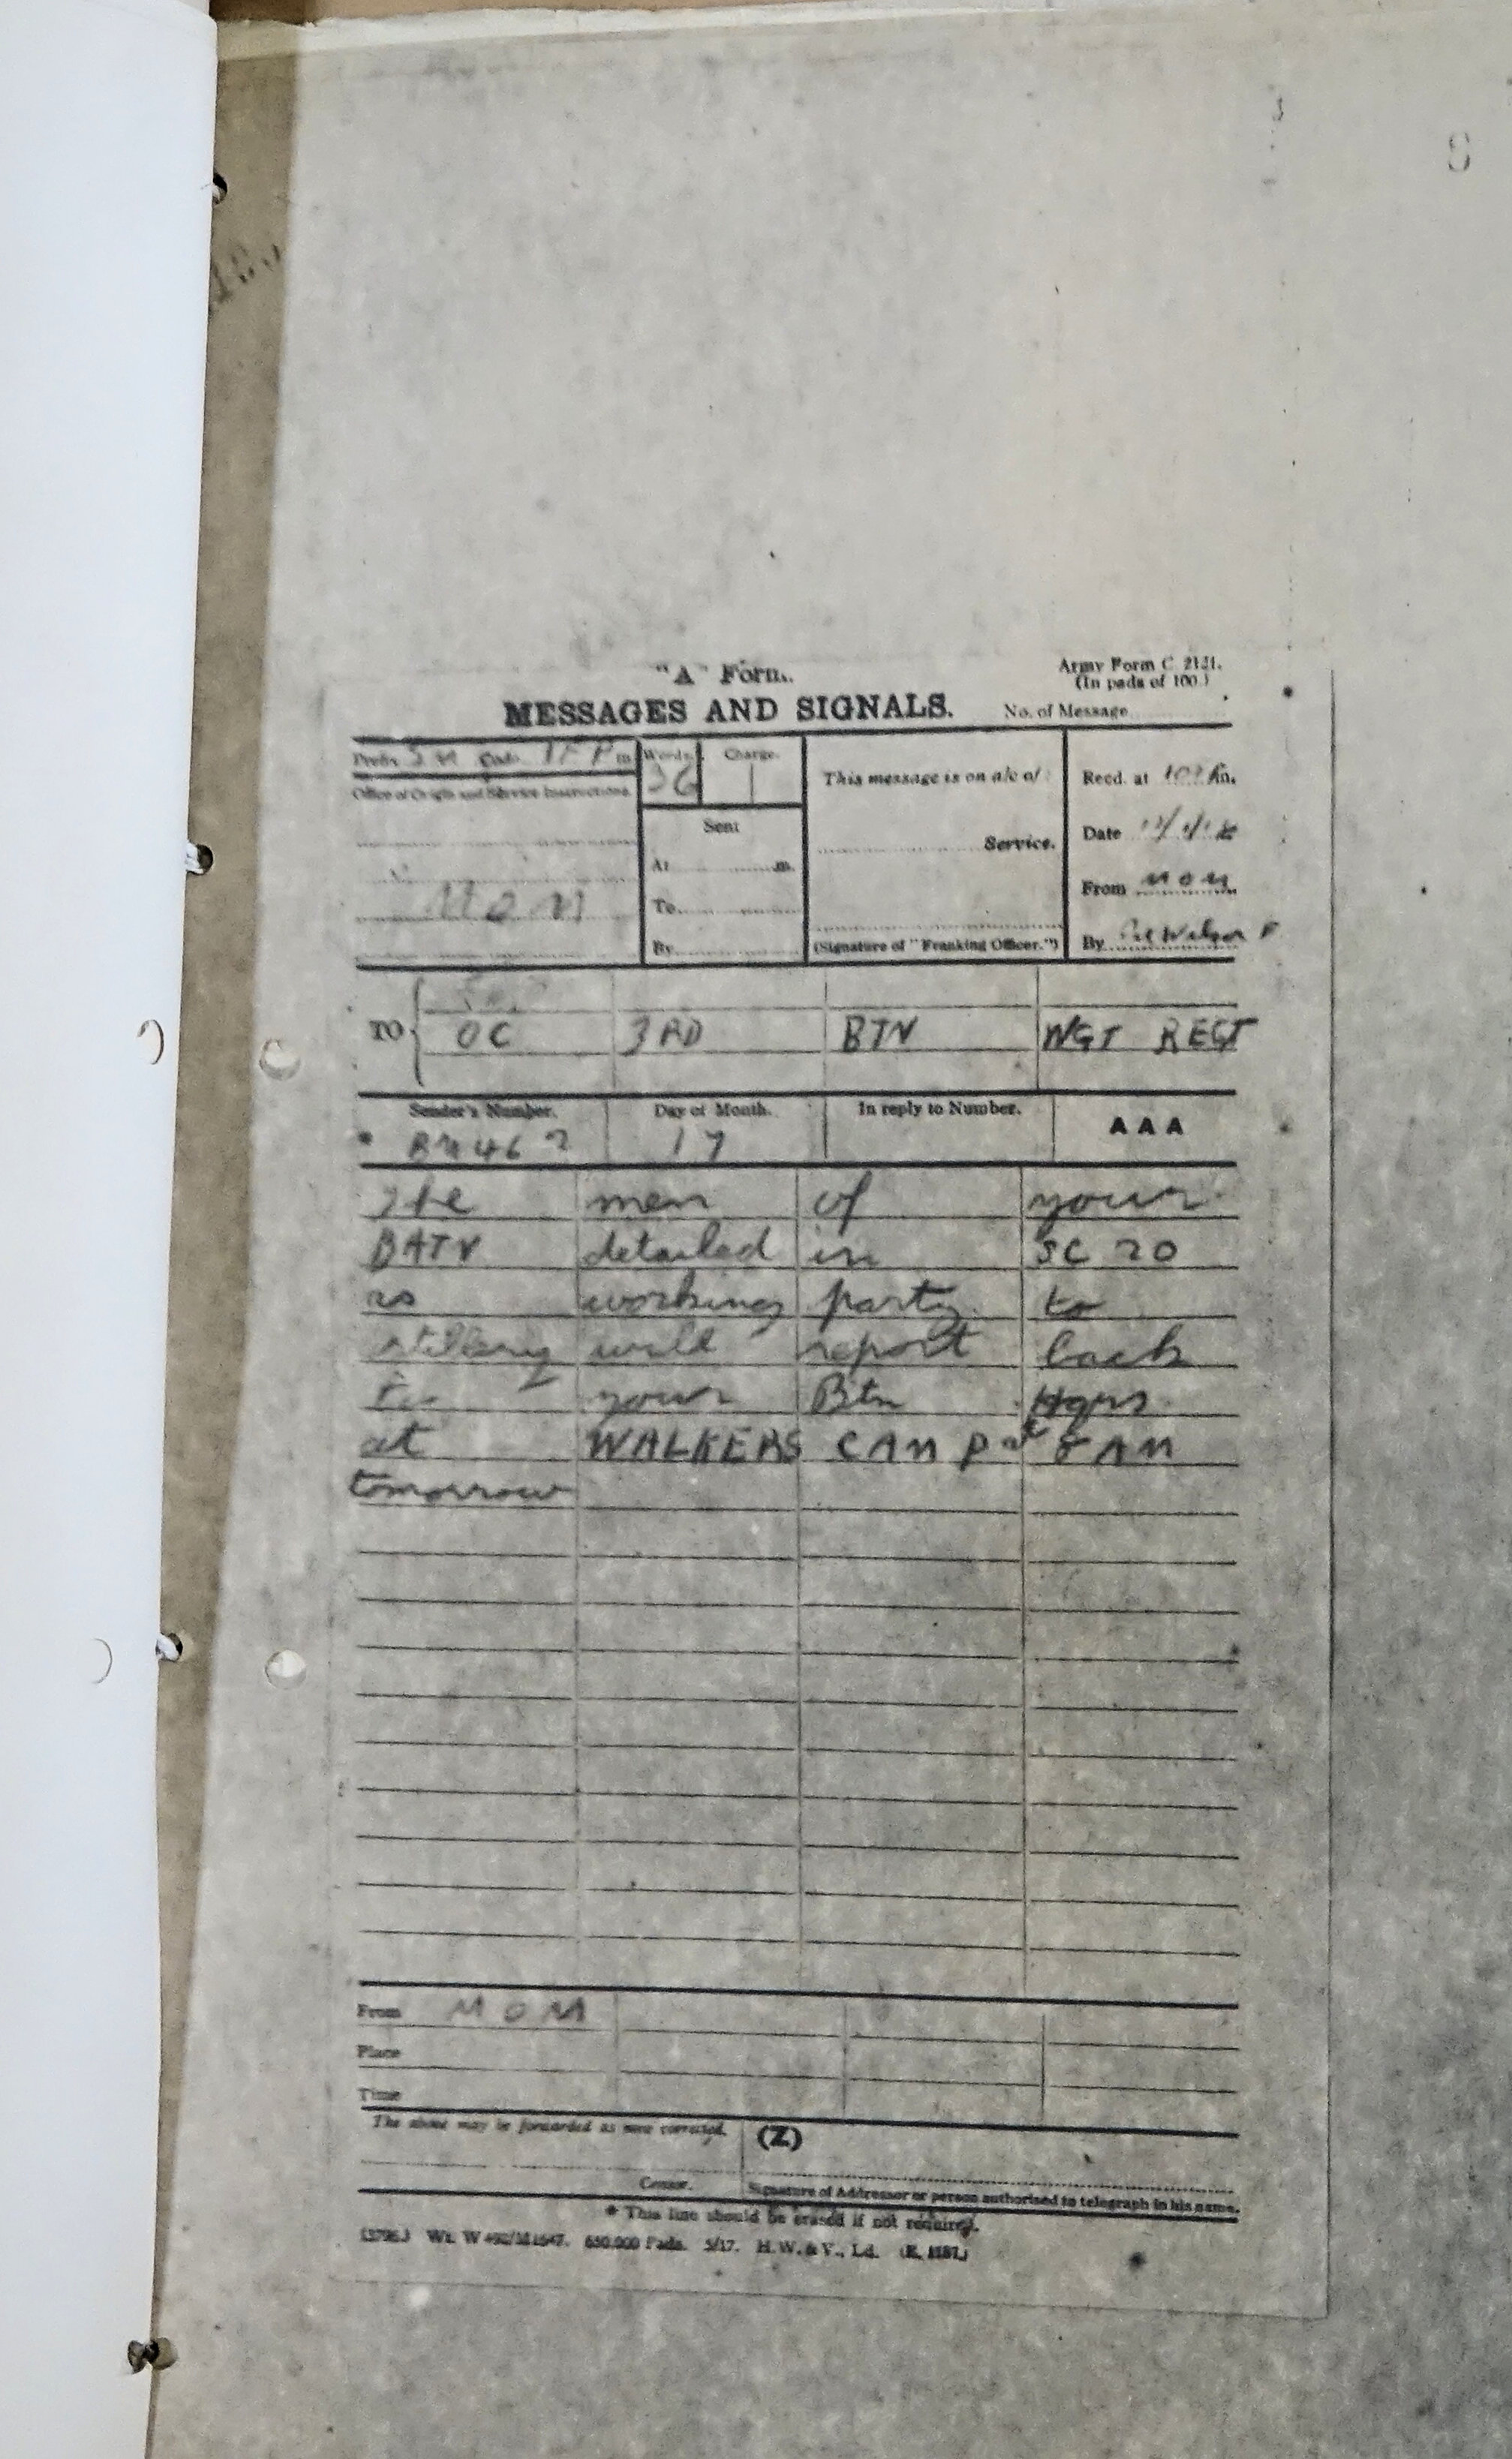 "A" Form.
Army Form C. 2121.
(In pads of 100.)
MESSAGES AND SIGNALS.
No. of Message
Prefix SM Code m.
Words.
36
Charge.
Office of Origin and Service Instructions.
MOM
Sent
At m.
To
By
This message is on a/c of:
Service.
(Signature of "Franking Officer.")
Recd. at m.
Date
From MOM
By Wilson
TO OC 3RD BTN WGT REGT
Sender's Number.
Day of Month.
In reply to Number.
AAA
* 17
The men of your
BATN detailed in SC 20
as working party to
artillery will report back
to your Btn Hqrs
at WALKERS CAMP at 8 AM
tomorrow
From MOM
Place
Time
The above may be forwarded as now corrected.
(Z)
Censor.
Signature of Addressor or person authorised to telegraph in his name.
* This line should be erased if not required.
650,000 Pads. 5/17. H.W.&V., Ld.